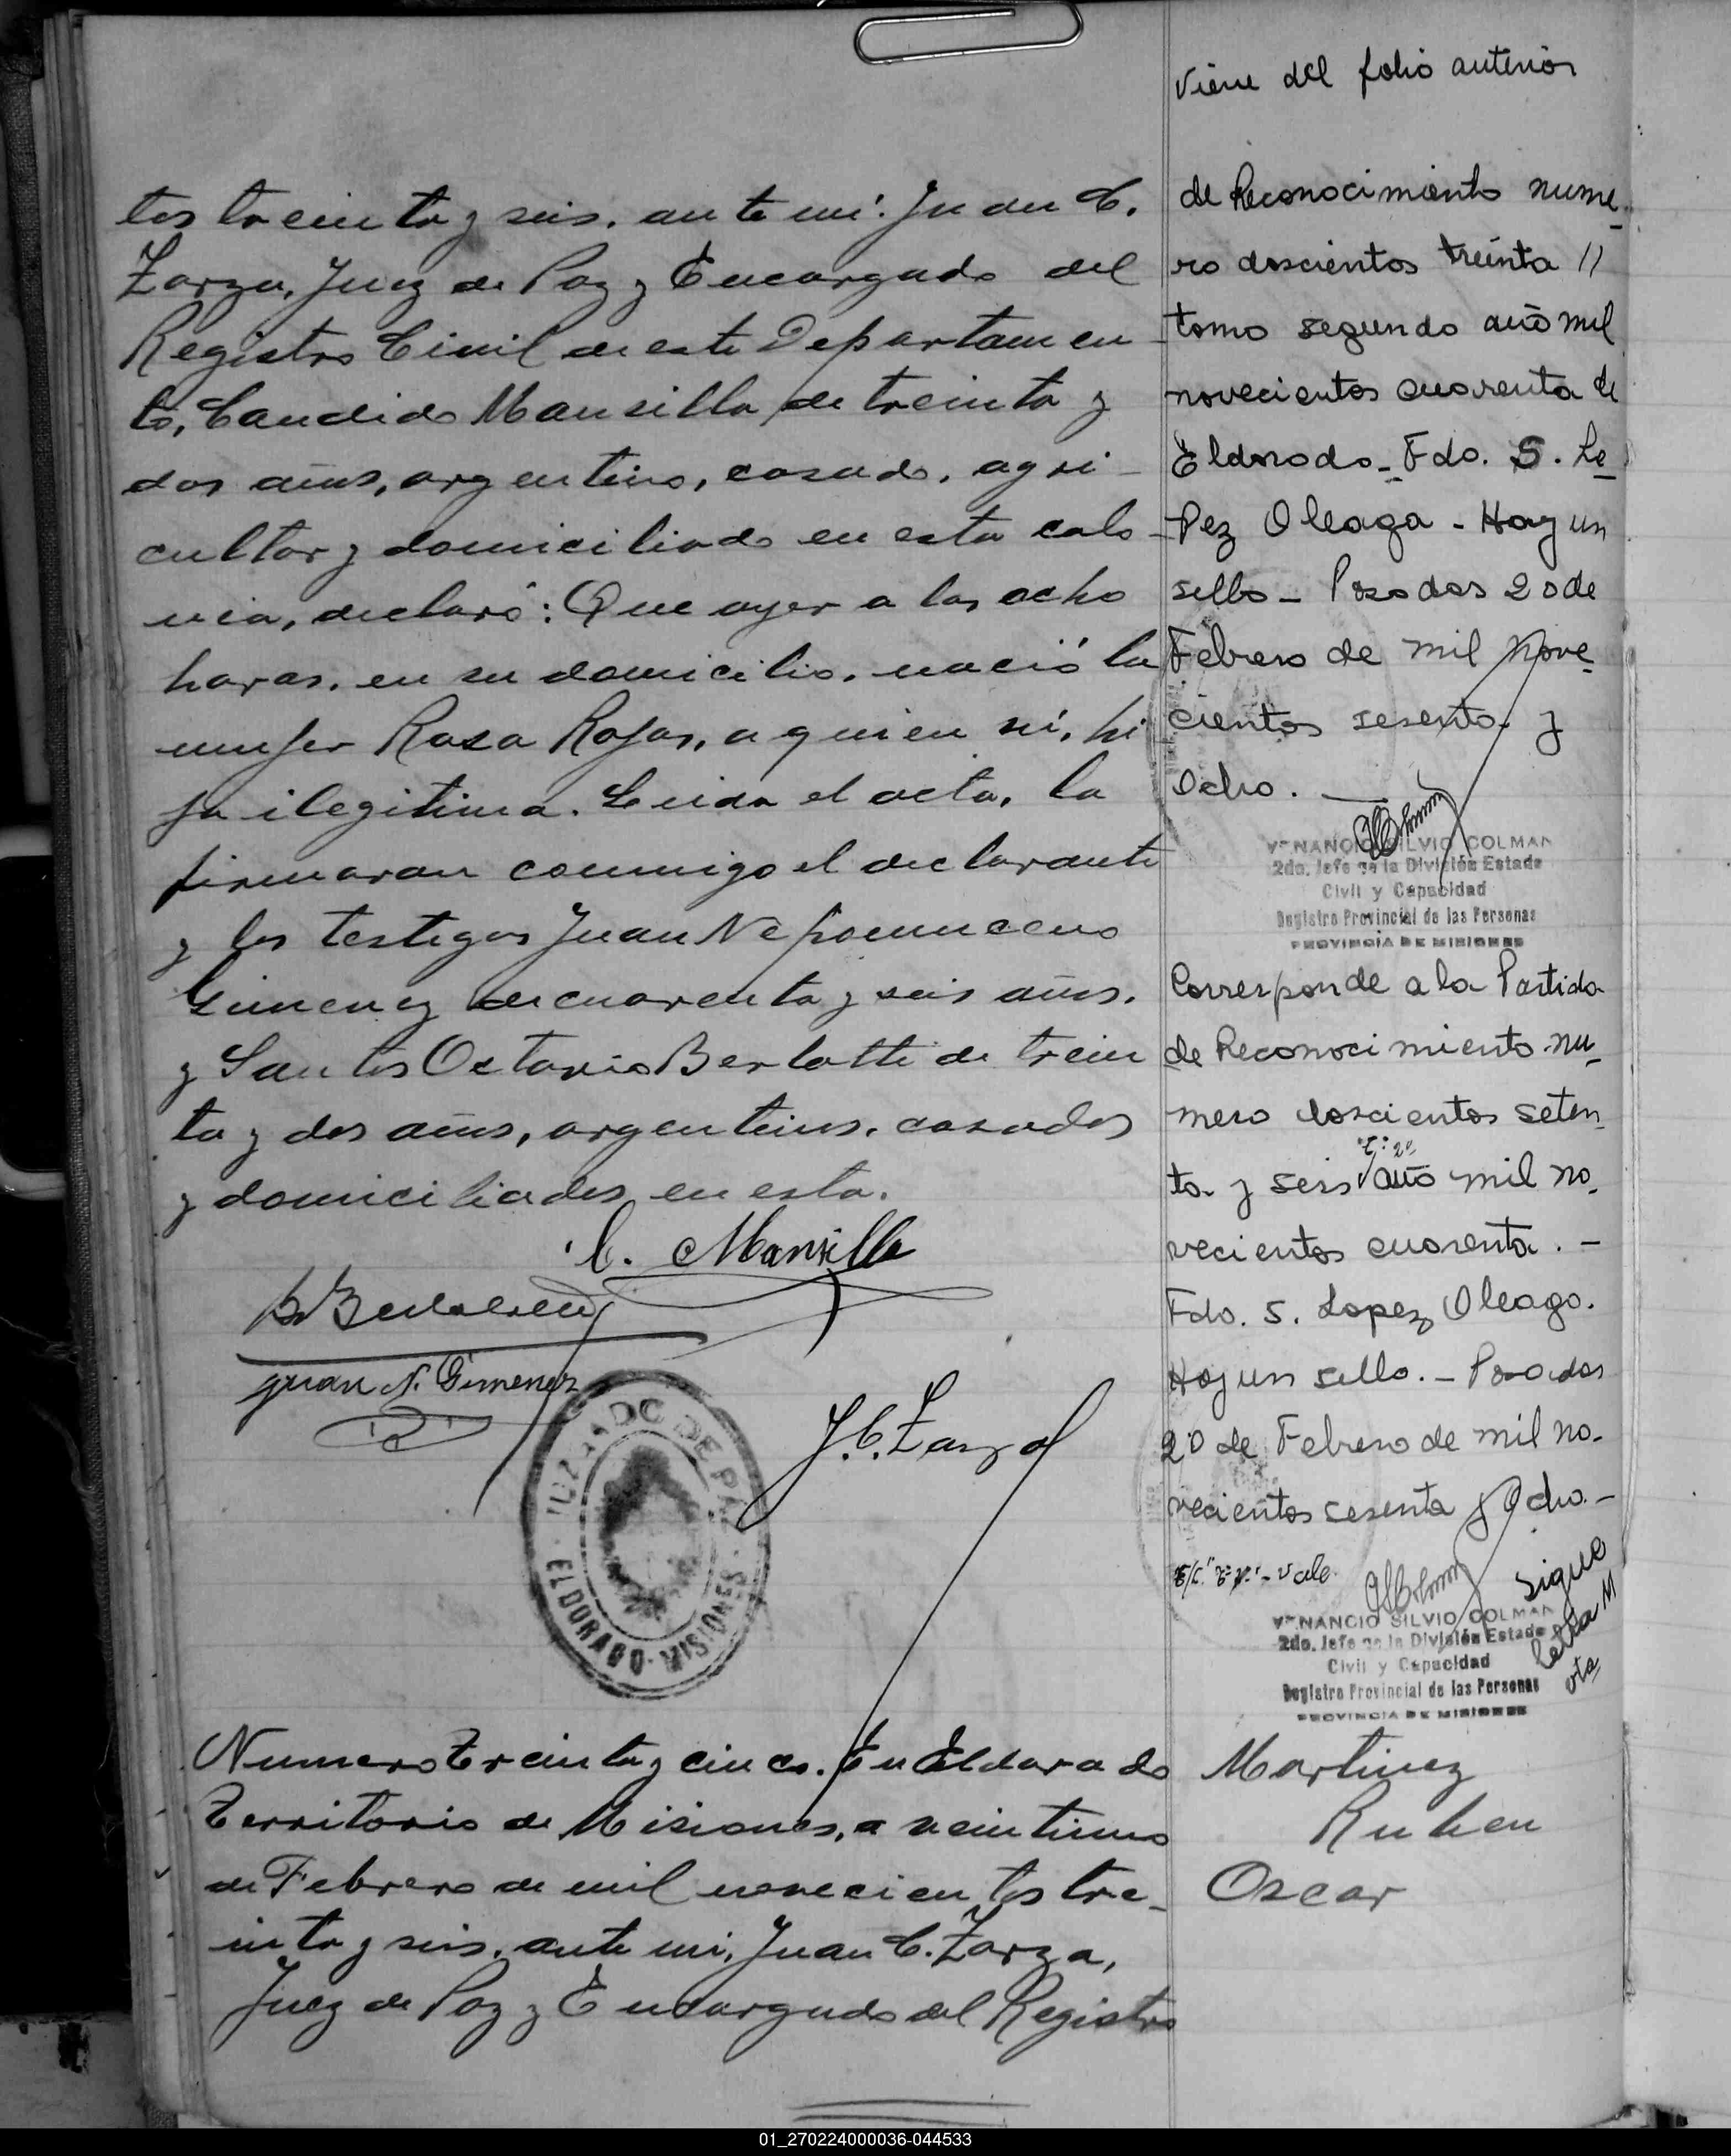 tos treinta y seis, ante mí: Juan C.
Zarza, Juez de Paz y Encargado del
Registro Civil de este Departamen
to, Candido Mansilla, de treinta y
dos años, argentino, casado, agri-
cultor y domiciliado en esta colo-
nia, declaró: Que ayer a las ocho
horas, en su domicilio, nació la
mujer Rosa Rojas, a quien ví, hi
ja ilegitima. Leida el acta, la
firmaran conmigo el declarante
y los testigos Juan Nepomuceno
Gimenez de cuarenta y seis años,
y Santos Octavio Berlotti de trein
ta y dos años, argentinos, casados
y domiciliados en esta.
C. Mansilla
Juan N. Gimenez
J.C. Zarza
JUZGADO DE PAZ
ELDORADO - MISIONES
Numero Treinta y cinco. En Eldorado
Territorio de Misiones, a veintiuno
de Febrero de mil novecientos tre-
inta y seis, ante mi, Juan C. Zarza,
Juez de Paz y Encargado del Registro
Viene del folio anterior
de Reconocimiento nume-
ro doscientos treinta //
tomo segundo año mil
novecientos cuarenta de
Eldorado - Fdo. S. Lo-
pez Oleaga - Hay un
sello - Posadas 20 de
Febrero de mil nove-
cientos sesenta y
Ocho. —
VENANCIO SILVIO COLMAN
2do. Jefe de la División Estado
Civil y Capacidad
Registro Provincial de las Personas
PROVINCIA DE MISIONES
Corresponde a la Partida
de Reconocimiento nu-
mero doscientos seten-
Tº 2º
ta y seis año mil no-
vecientos cuarenta. -
Fdo. S. Lopez Oleaga.
Hay un sello. - Posadas
20 de Febrero de mil no-
vecientos sesenta y Ocho. -
vale.
Sigue
VENANCIO SILVIO COLMAN
2do. Jefe de la División Estado
Civil y Capacidad
Registro Provincial de las Personas
PROVINCIA DE MISIONES
Martinez
Ruben
Oscar
01_270224000036-044533